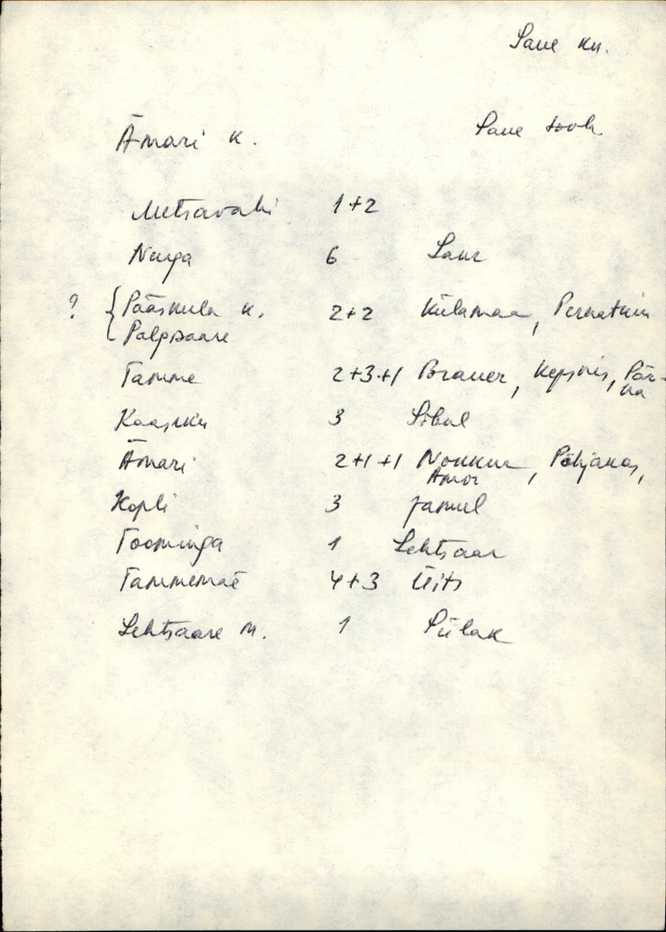 Saue kn.
Ämari k. Saue
Metsavahi 1+2
Nurga 6 Saar
? { Pääsküla k. 2+2 Külamaa,
Palgisaare
Tamme 2+3+1 Brauer, Kepsnis, Pär-
na
Kaasiku 3 Sibul
Ämari 2+1+1 Nokkur, Põhjakas,
Amor
Kopli 3 Jamul
Toominga 1 Lehtsaar
Tammemäe 4+3 Üits
Lehtsaare m. 1 Siilak